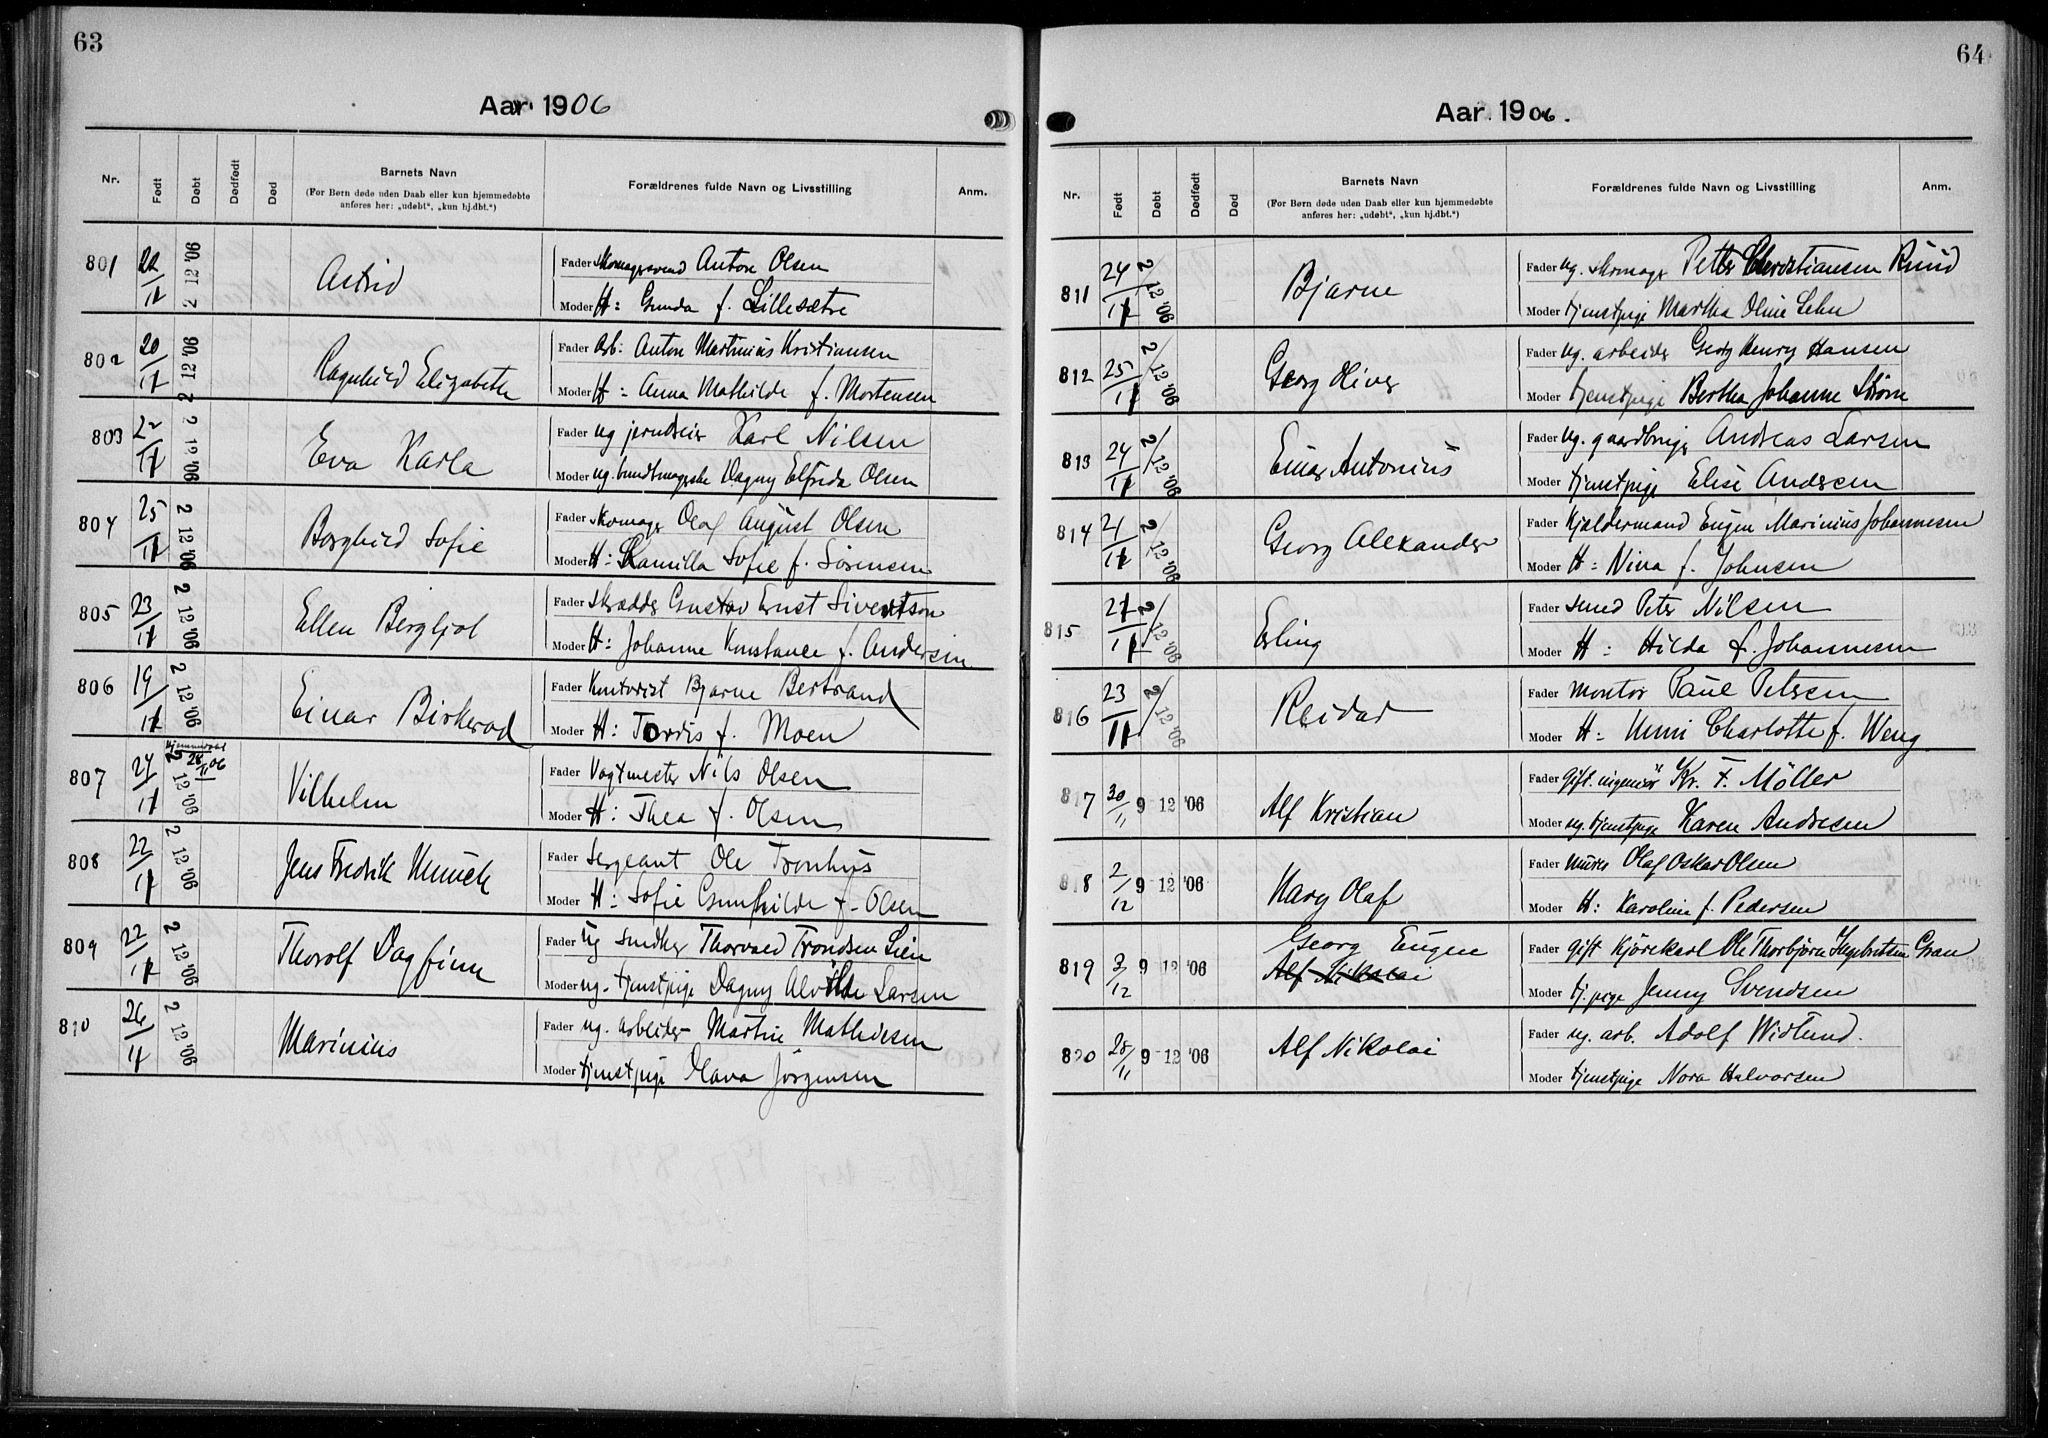 63
Aar 1906
Nr. Født Døbt Dødfødt Død Barnets Navn Forældrenes fulde Navn og Livsstilling Anm.
(For Børn døde uden Daab eller kun hjemmedøbte
anføres her: „udøbt“, „kun hj.dbt.“)
801 22/11 2 12 '06 Astrid Fader skomagersvend Anton Olsen
Moder H: Gunda f. Lillesætre
802 20/11 2 12 '06 Ragnhild Elizabeth Fader Arb: Anton Martinius Kristiansen
Moder H: Anna Mathilde f. Mortensen
803 22/11 2 12 '06 Eva Karla Fader ug jerndreier Karl Nilsen
Moder ug. bundtmagerske Dagny Elfrida Olsen
804 25/11 2 12 '06 Borghild Sofie Fader skomager Olaf August Olsen
Moder H: Kamilla Sofie f. Sørensen
805 23/11 2 12 '06 Ellen Bergljot Fader skrædder Gustav Ernst Sivertson
Moder H: Johanne Konstance f. Andersen
806 19/11 2 12 '06 Einar Birkerod Fader Kontorist Bjarne Bertrand
Moder H: Tordis f. Moen
807 24/11 hjemmedøbt 28/11 06 2 12 '06 Vilhelm Fader Vagtmester Nils Olsen
Moder H: Thea f. Olsen
808 22/11 2 12 '06 Jens Fredrik Munck Fader Sergeant Ole Tronhus
Moder H: Sofie Gunhilde f. Olsen
809 22/11 2 12 '06 Thorolf Dagfinn Fader Ug snedker Thorvald Trondsen Lien
Moder ug. tjenestpige Dagny Alvilde Larsen
810 26/11 2 12 '06 Marinius Fader ug. arbeider Martin Mathisen
Moder tjenestpige Olava Jørgensen
64
Aar 1906.
Nr. Født Døbt Dødfødt Død Barnets Navn Forældrenes fulde Navn og Livsstilling Anm.
(For Børn døde uden Daab eller kun hjemmedøbte
anføres her: „udøbt“, „kun hj.dbt.“)
811 24/11 2/12 '06 Bjarne Fader ug. skomager Petter Christiansen Ruud
Moder tjenstpige Martha Oline Lehn
812 25/11 2/12 '06 Georg Oliver Fader ug. arbeider Georg Henry Hansen
Moder tjenestpige Bertha Johanne Strøm
813 24/11 2/12 '06 Einar Antonius Fader ug. gaardbruger Andreas Larsen
Moder tjenstpige Elise Andersen
814 21/11 2/12 '06 Georg Alexander Fader Kjældermand Eugen Marinius Johannesen
Moder H: Nina f. Johnsen
815 27/11 2/12 '06 Erling Fader smed Peter Nilsen
Moder H: Hilda f. Johannesen
816 23/11 2/12 '06 Reidar Fader montør Paul Petersen
Moder H: Mimi Charlotte f. Weng
817 30/11 9 12 '06 Alf Kristian Fader gift. ingeniør Kr. F. Møller
Moder ug. tjenstpige Karen Andresen
818 2/12 9 12 '06 Harry Olaf Fader murer Olaf Oskar Olsen
Moder H: Karoline f. Pedersen
819 3/12 9 12 '06 Georg Eugen Fader gift Kjørekarl Ole Thorbjørn Ingebretsen Gran
Alf Nikolai Moder tj. pige Jenny Svendsen
820 28/11 9 12 '06 Alf Nikolai Fader ug. arb. Adolf Widlund.
Moder tjenstpige Nora Halvorsen